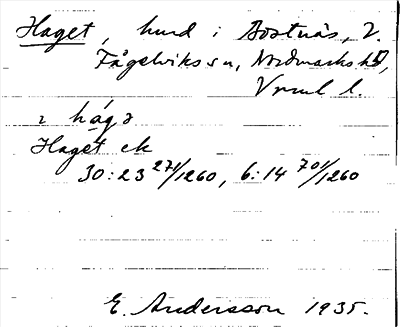 Haget, hmd i Bostnäs, V.
Fågelviks sn, Nordmarks hd,
Vrml l.
i hágə
Haget ek
30:23 271/1260, 6:14 701/1260
E. Andersson 1935.